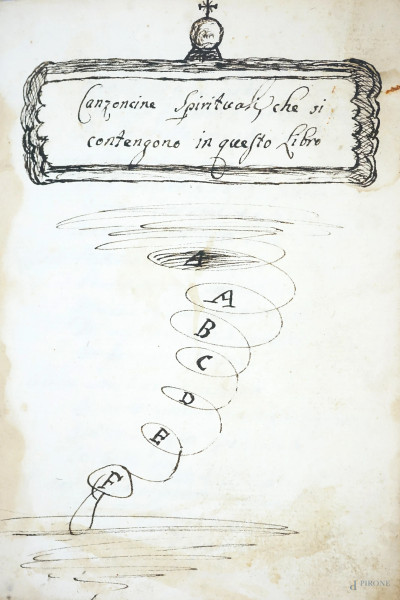 Canzoncine Spirituali, che si
contengono in questo Libro
A
A
B
C
D
E
F
PIRONE